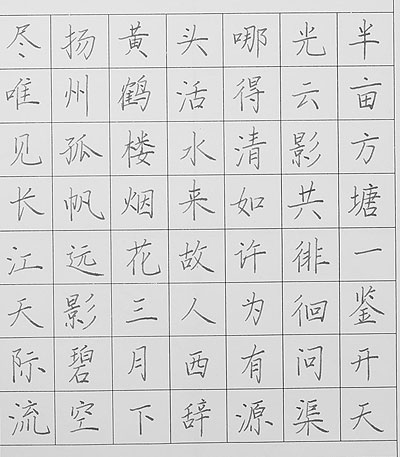 半亩方塘一鉴开天
光云影共徘徊问渠
哪得清如许为有源
头活水来故人西辞
黄鹤楼烟花三月下
扬州孤帆远影碧空
尽唯见长江天际流